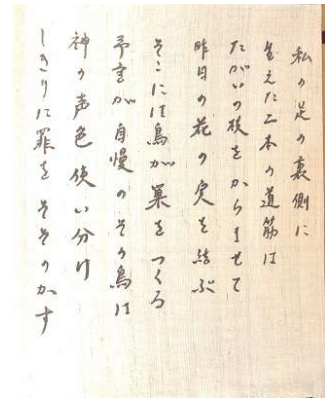 私の足の裏側に
生えた二本の道筋は
たがいの枝をからませて
昨日の花の実を結ぶ
そこには鳥が巣をつくる
予言が自慢のその鳥は
神の声色使い分け
しきりに罪をそそのかす